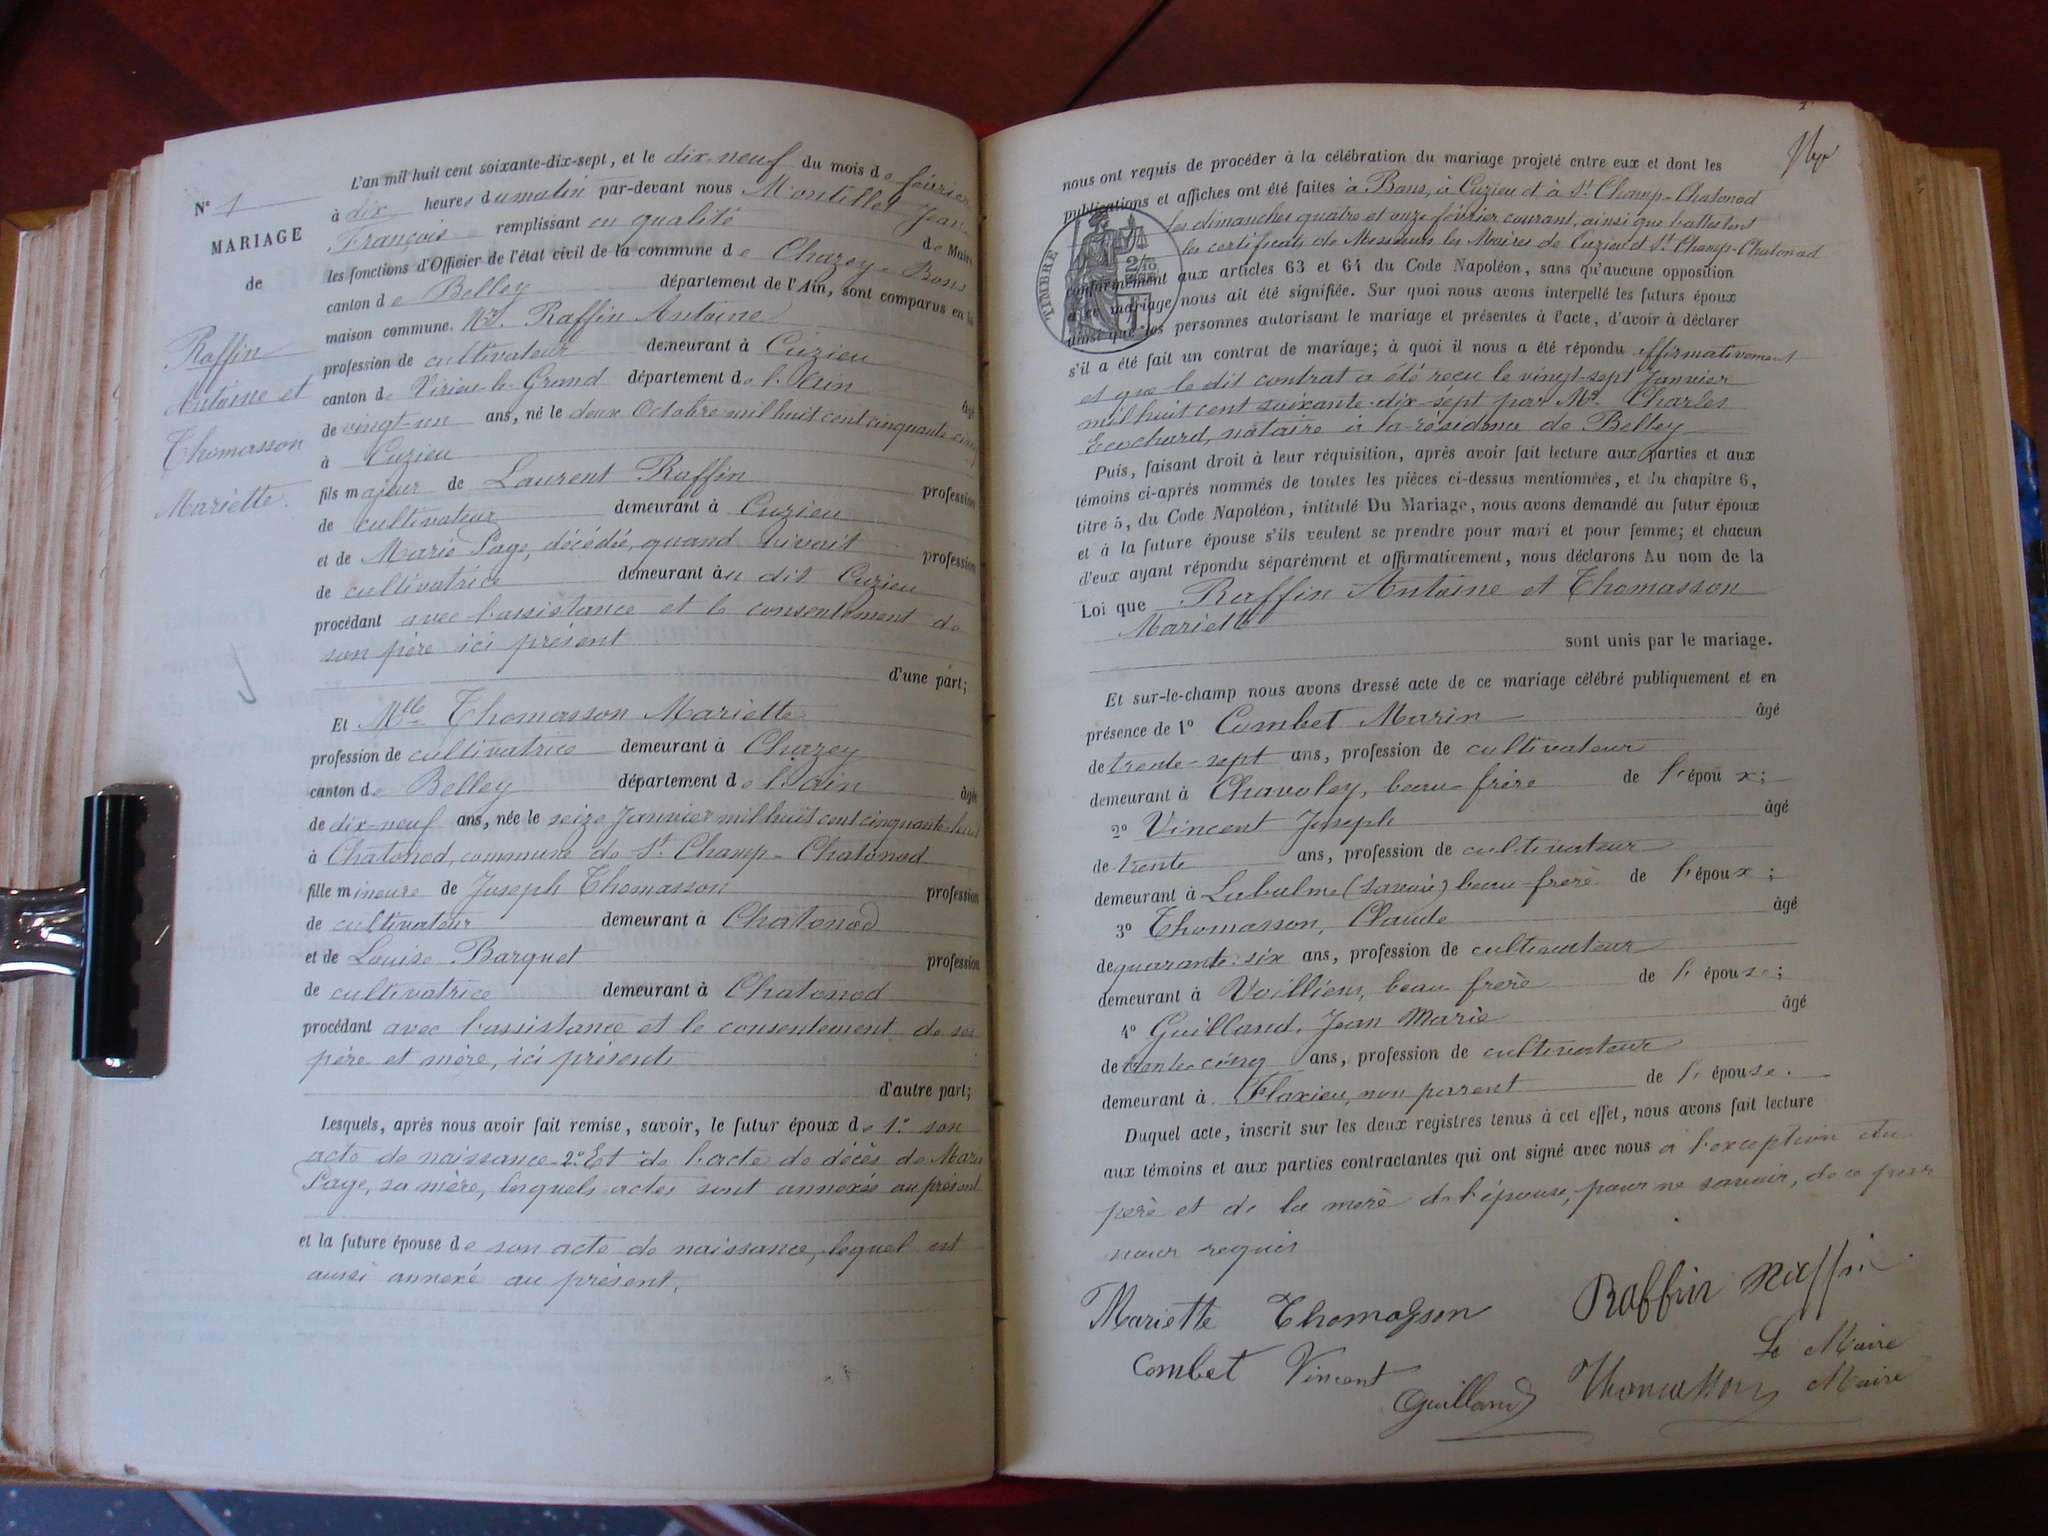 N° 1
MARIAGE
de
Raffin
Antoine et
Thomasson
Mariette.
L'an mil huit cent soixante-dix-sept, et le dix-neuf du mois de février
à dix heures du matin par-devant nous Montillet Jean
François remplissant en qualité de Maire
les fonctions d'Officier de l'état civil de la commune de Chazey-Bons
canton de Belley département de l'Ain, sont comparus en la
maison commune. Mr. Raffin Antoine
profession de cultivateur demeurant à Cuzieu
canton de Virieu-le-Grand département de l'Ain âgé
de vingt-un ans, né le deux Octobre mil huit cent cinquante-cinq
à Cuzieu
fils majeur de Laurent Raffin profession
de cultivateur demeurant à Cuzieu
et de Marie Page, décédée, quand vivait profession
de cultivatrice demeurant au dit Cuzieu
procédant avec l'assistance et le consentement de
son père ici présent
d'une part;
Et Mlle Thomasson Mariette
profession de cultivatrice demeurant à Chazey
canton de Belley département de l'Ain âgée
de dix-neuf ans, née le seize Janvier mil huit cent cinquante-huit
à Chatonod, commune de St Champ-Chatonod
fille mineure de Joseph Thomasson profession
de cultivateur demeurant à Chatonod
et de Louise Barquet profession
de cultivatrice demeurant à Chatonod
procédant avec l'assistance et le consentement de ses
père et mère, ici présents
d'autre part;
Lesquels, après nous avoir fait remise, savoir, le futur époux de 1° son
acte de naissance 2° Et de l'acte de décès de Marie
Page, sa mère, lesquels actes sont annexés au présent
et la future épouse de son acte de naissance, lequel est
aussi annexé au présent.
nous ont requis de procéder à la célébration du mariage projeté entre eux et dont les
publications et affiches ont été faites à Bons, à Cuzieu et à St Champ-Chatonod
les dimanches quatre et onze février courant, ainsi que l'attestent
les certificats de Messieurs les Maires de Cuzieu et St Champ-Chatonod
TIMBRE
conformément aux articles 63 et 64 du Code Napoléon, sans qu'aucune opposition
à ce mariage nous ait été signifiée. Sur quoi nous avons interpellé les futurs époux
ainsi que les personnes autorisant le mariage et présentes à l'acte, d'avoir à déclarer
s'il a été fait un contrat de mariage; à quoi il nous a été répondu affirmativement
et que le dit contrat a été reçu le vingt-sept Janvier
mil huit cent soixante-dix-sept par Me Charles
Ecochard, notaire à la résidence de Belley
Puis, faisant droit à leur réquisition, après avoir fait lecture aux parties et aux
témoins ci-après nommés de toutes les pièces ci-dessus mentionnées, et du chapitre 6,
titre 5, du Code Napoléon, intitulé Du Mariage, nous avons demandé au futur époux
et à la future épouse s'ils veulent se prendre pour mari et pour femme; et chacun
d'eux ayant répondu séparément et affirmativement, nous déclarons Au nom de la
Loi que Raffin Antoine et Thomasson
Mariette
sont unis par le mariage.
Et sur-le-champ nous avons dressé acte de ce mariage célébré publiquement et en
présence de 1° Combet Marin âgé
de trente-sept ans, profession de cultivateur
demeurant à Chavoley, beau-frère de l'époux;
2° Vincent Joseph âgé
de trente ans, profession de cultivateur
demeurant à Labalme (Savoie) beau-frère de l'époux;
3° Thomasson, Claude âgé
de quarante-six ans, profession de cultivateur
demeurant à Voilliens, beau-frère de l'épouse;
4° Guilland, Jean Marie âgé
de trente-cinq ans, profession de cultivateur
demeurant à Flaxieu, non parent de l'épouse.
Duquel acte, inscrit sur les deux registres tenus à cet effet, nous avons fait lecture
aux témoins et aux parties contractantes qui ont signé avec nous à l'exception du
père et de la mère de l'épouse, pour ne savoir, de ce par
nous requis
Mariette Thomasson Raffin Raffin
Le Maire
Combet Vincent Guilland Thomasson Maire